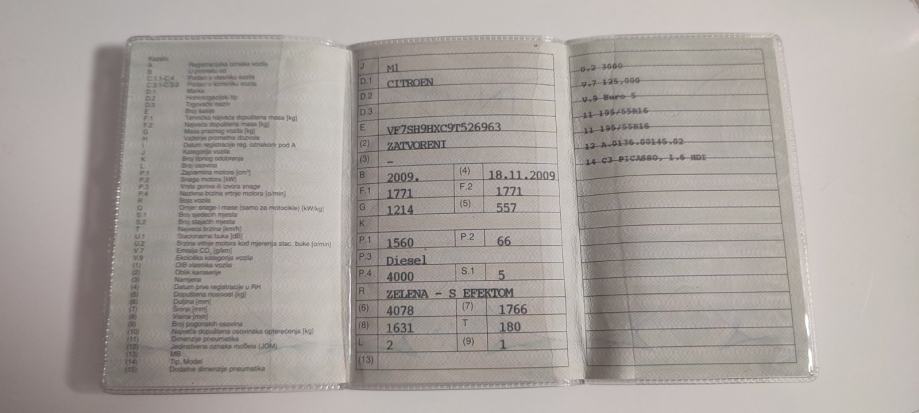 Kazalo:
A Registracijska oznaka vozila
B U prometu od
C.1.1-C.4 Podaci o vlasniku vozila
Podaci o korisniku vozila
D.1 Marka
D.2 Homologacijski tip
D.3 Trgovački naziv
E Broj šasije
F.1 Tehnička najveća dopuštena masa [kg]
F.2 Najveća dopuštena masa [kg]
G Masa praznog vozila [kg]
H Važenje prometne dozvole
I Datum registracije reg. oznakom pod A
J Kategorija vozila
K Broj tipnog odobrenja
L Broj osovina
P.1 Zapremina motora [cm³]
P.2 Snaga motora [kW]
P.3 Vrsta goriva ili izvora snage
P.4 Nazivna brzina vrtnje motora [o/min]
R Boja vozila
Q Omjer snage i mase (samo za motocikle) [kW/kg]
S.1 Broj sjedećih mjesta
S.2 Broj stajaćih mjesta
T Najveća brzina [km/h]
U.1 Stacionarna buka [dB]
U.2 Brzina vrtnje motora kod mjerenja stac. buke [o/min]
V.7 Emisija CO₂ [g/km]
V.9 Ekološka kategorija vozila
(1) OIB vlasnika vozila
(2) Oblik karoserije
(3) Namjena
(4) Datum prve registracije u RH
(5) Dopuštena nosivost [kg]
(6) Duljina [mm]
(7) Širina [mm]
(8) Visina [mm]
(9) Broj pogonskih osovina
(10) Najveće dopuštena osovinska opterećenja [kg]
(11) Dimenzije pneumatika
(12) Jedinstvena oznaka modela (JOM)
(13) MB
(14) Tip, Model
(15) Dodatne dimenzije pneumatika
J M1
D.1 CITROEN
D.2
D.3
E VF7SH9HXC9T526963
(2) ZATVORENI
(3) –
B 2009. (4) 18.11.2009
F.1 1771 F.2 1771
G 1214 (5) 557
K
P.1 1560 P.2 66
P.3 Diesel
P.4 4000 S.1 5
R ZELENA - S EFEKTOM
(6) 4078 (7) 1766
(8) 1631 T 180
L 2 (9) 1
(13)
U.2 3000
V.7 125,000
V.9 Euro 5
11 195/55R16
11 195/55R16
12 A.0136.00146.02
14 C3 PICASSO, 1.6 HDI